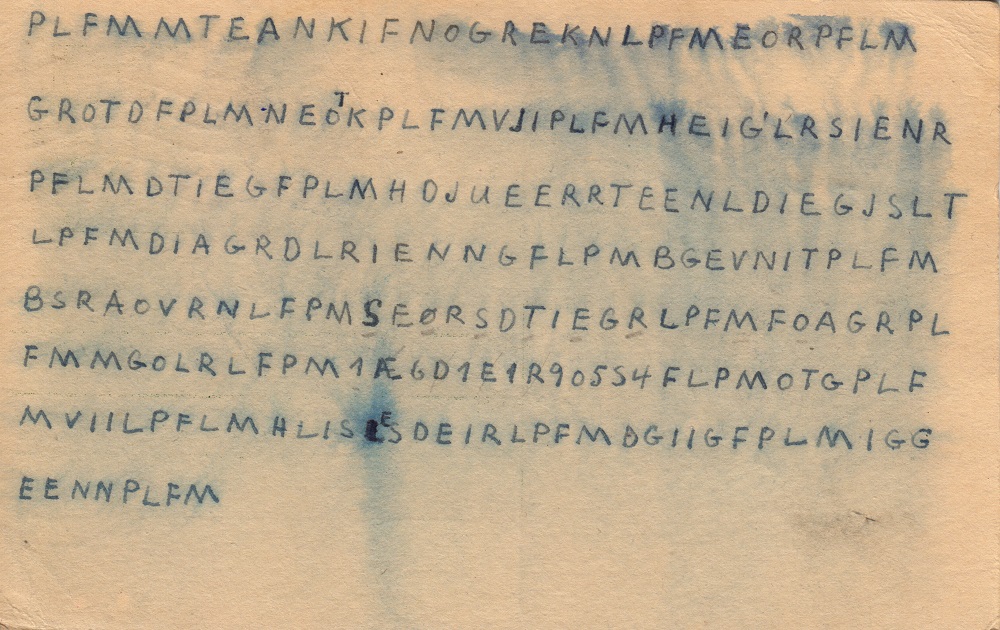 PLFMMTEANKIFNOGREKNLPFMEORPFLM
GROTDFPLMNEOTKPLFMVJIPLFMHEIG'LRSIENR
PFLMDTIEGFPLMHOJUEERRTEENLDIEGJSLT
LPFMDIAGRDLRIENNGFLPMBGEVNITPLFM
BSRAOVRNLFPMSEØRSDTIEGRLPFMFOAGRPL
FMMGOLRLFPM1Æ6D1E1R905S4FLPMOTGPLF
MVIILPFLMHLISESDEIRLPFMDGIIGFPLMIGG
EENNPLFM